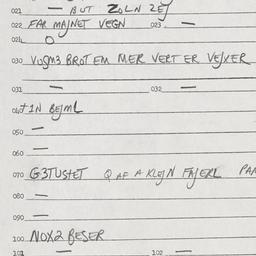 021 — BUT ZOLN ZEJ
022 FAR MAJNET VEGN 023 —
024 O
030 VUGM3 BROT EM MER VERT ER VEJXER
031 — 032 —
040 +IN BEJML
050 —
060 —
070 G3TUSTET Q AF A KLEJN FAJERL PAA
080 —
090 —
100 NOX2 BESER
101 — 102 —